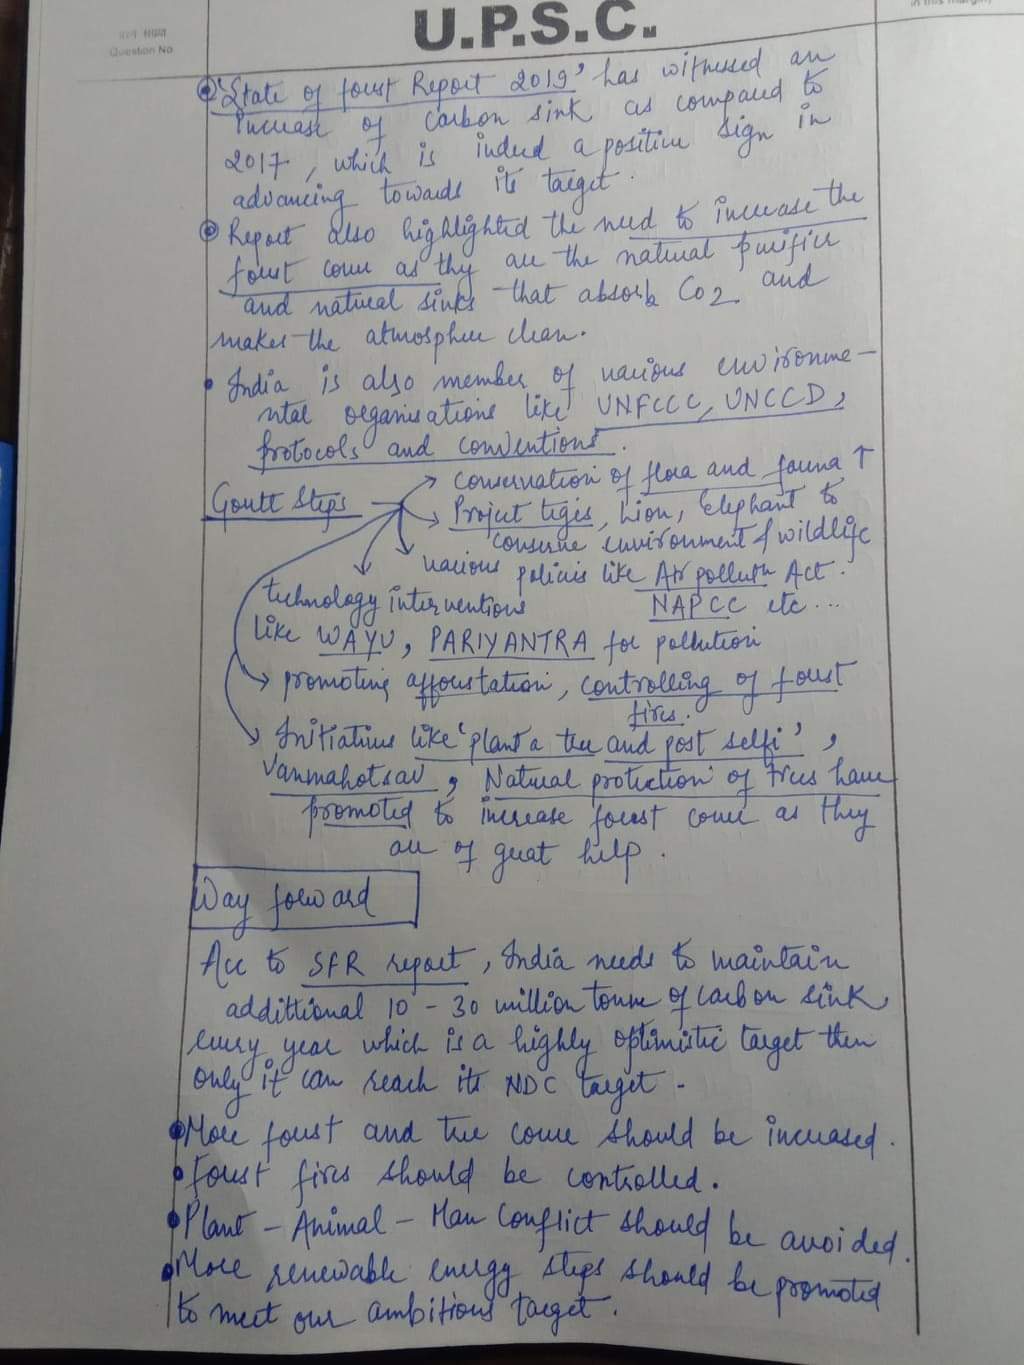 U.P.S.C.
in this margin)
Question No
'State of forest Report 2019' has witnessed an
increase of carbon sink as compared to
2017, which is indeed a positive sign in
advancing towards its target.
Report also highlighted the need to increase the
forest cover as they are the natural purifier
and natural sinks that absorb CO2 and
makes the atmosphere clean.
India is also member of various environme-
ntal organisations like UNFCCC, UNCCD,
protocols and conventions.
Govtt Steps
conservation of flora and fauna ↑
Project tiges, Lion, Elephant to
conserve environment & wildlife
various policies like Air pollutn Act.
NAPCC etc...
technology interventions
like WAYU, PARIYANTRA for pollution
promoting afforestation, controlling of forest
fires.
Initiatives like 'plant a tree and post selfi',
Vanmahotsav, Natural protection of trees have
promoted to increase forest cover as they
are of great help.
Way forward
Acc to SFR report, India needs to maintain
additional 10-30 million tonne of carbon sink
every year which is a highly optimistic target then
only it can reach its NDC target.
More forest and tree cover should be increased.
Forest fires should be controlled.
Plant-Animal-Man Conflict should be avoided.
More renewable energy steps should be promoted
to meet our ambitious target.